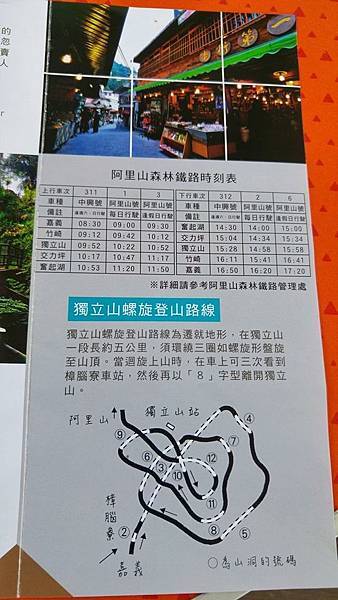 的
忽
賣
人
r
第一
阿里山森林鐵路時刻表
上行車次 311 1 3 下行車次 312 2 6
車種 中興號 阿里山號 阿里山號 車種 中興號 阿里山號 阿里山號
備註 逢週六、日行駛 每日行駛 逢假日行駛 備註 逢週六、日行駛 每日行駛 逢假日行駛
嘉義 08:30 09:00 09:30 奮起湖 14:30 14:00 15:00
竹崎 09:12 09:42 10:12 交力坪 15:04 14:34 15:34
獨立山 09:52 10:22 10:52 獨立山 15:28 14:58 15:58
交力坪 10:17 10:47 11:17 竹崎 16:11 15:41 16:41
奮起湖 10:53 11:20 11:50 嘉義 16:50 16:20 17:20
※詳細請參考阿里山森林鐵路管理處
獨立山螺旋登山路線
獨立山螺旋登山路線為遷就地形，在獨立山
一段長約五公里，須環繞三圈如螺旋形盤旋
至山頂。當迴旋上山時，在車上可三次看到
樟腦寮車站，然後再以「8」字型離開獨立
山。
阿里山 獨立山站
④
⑨ ⑦
⑥ ③ ⑫
⑩
⑪
樟腦寮 ② ⑧ ⑤
○為山洞的號碼
嘉義